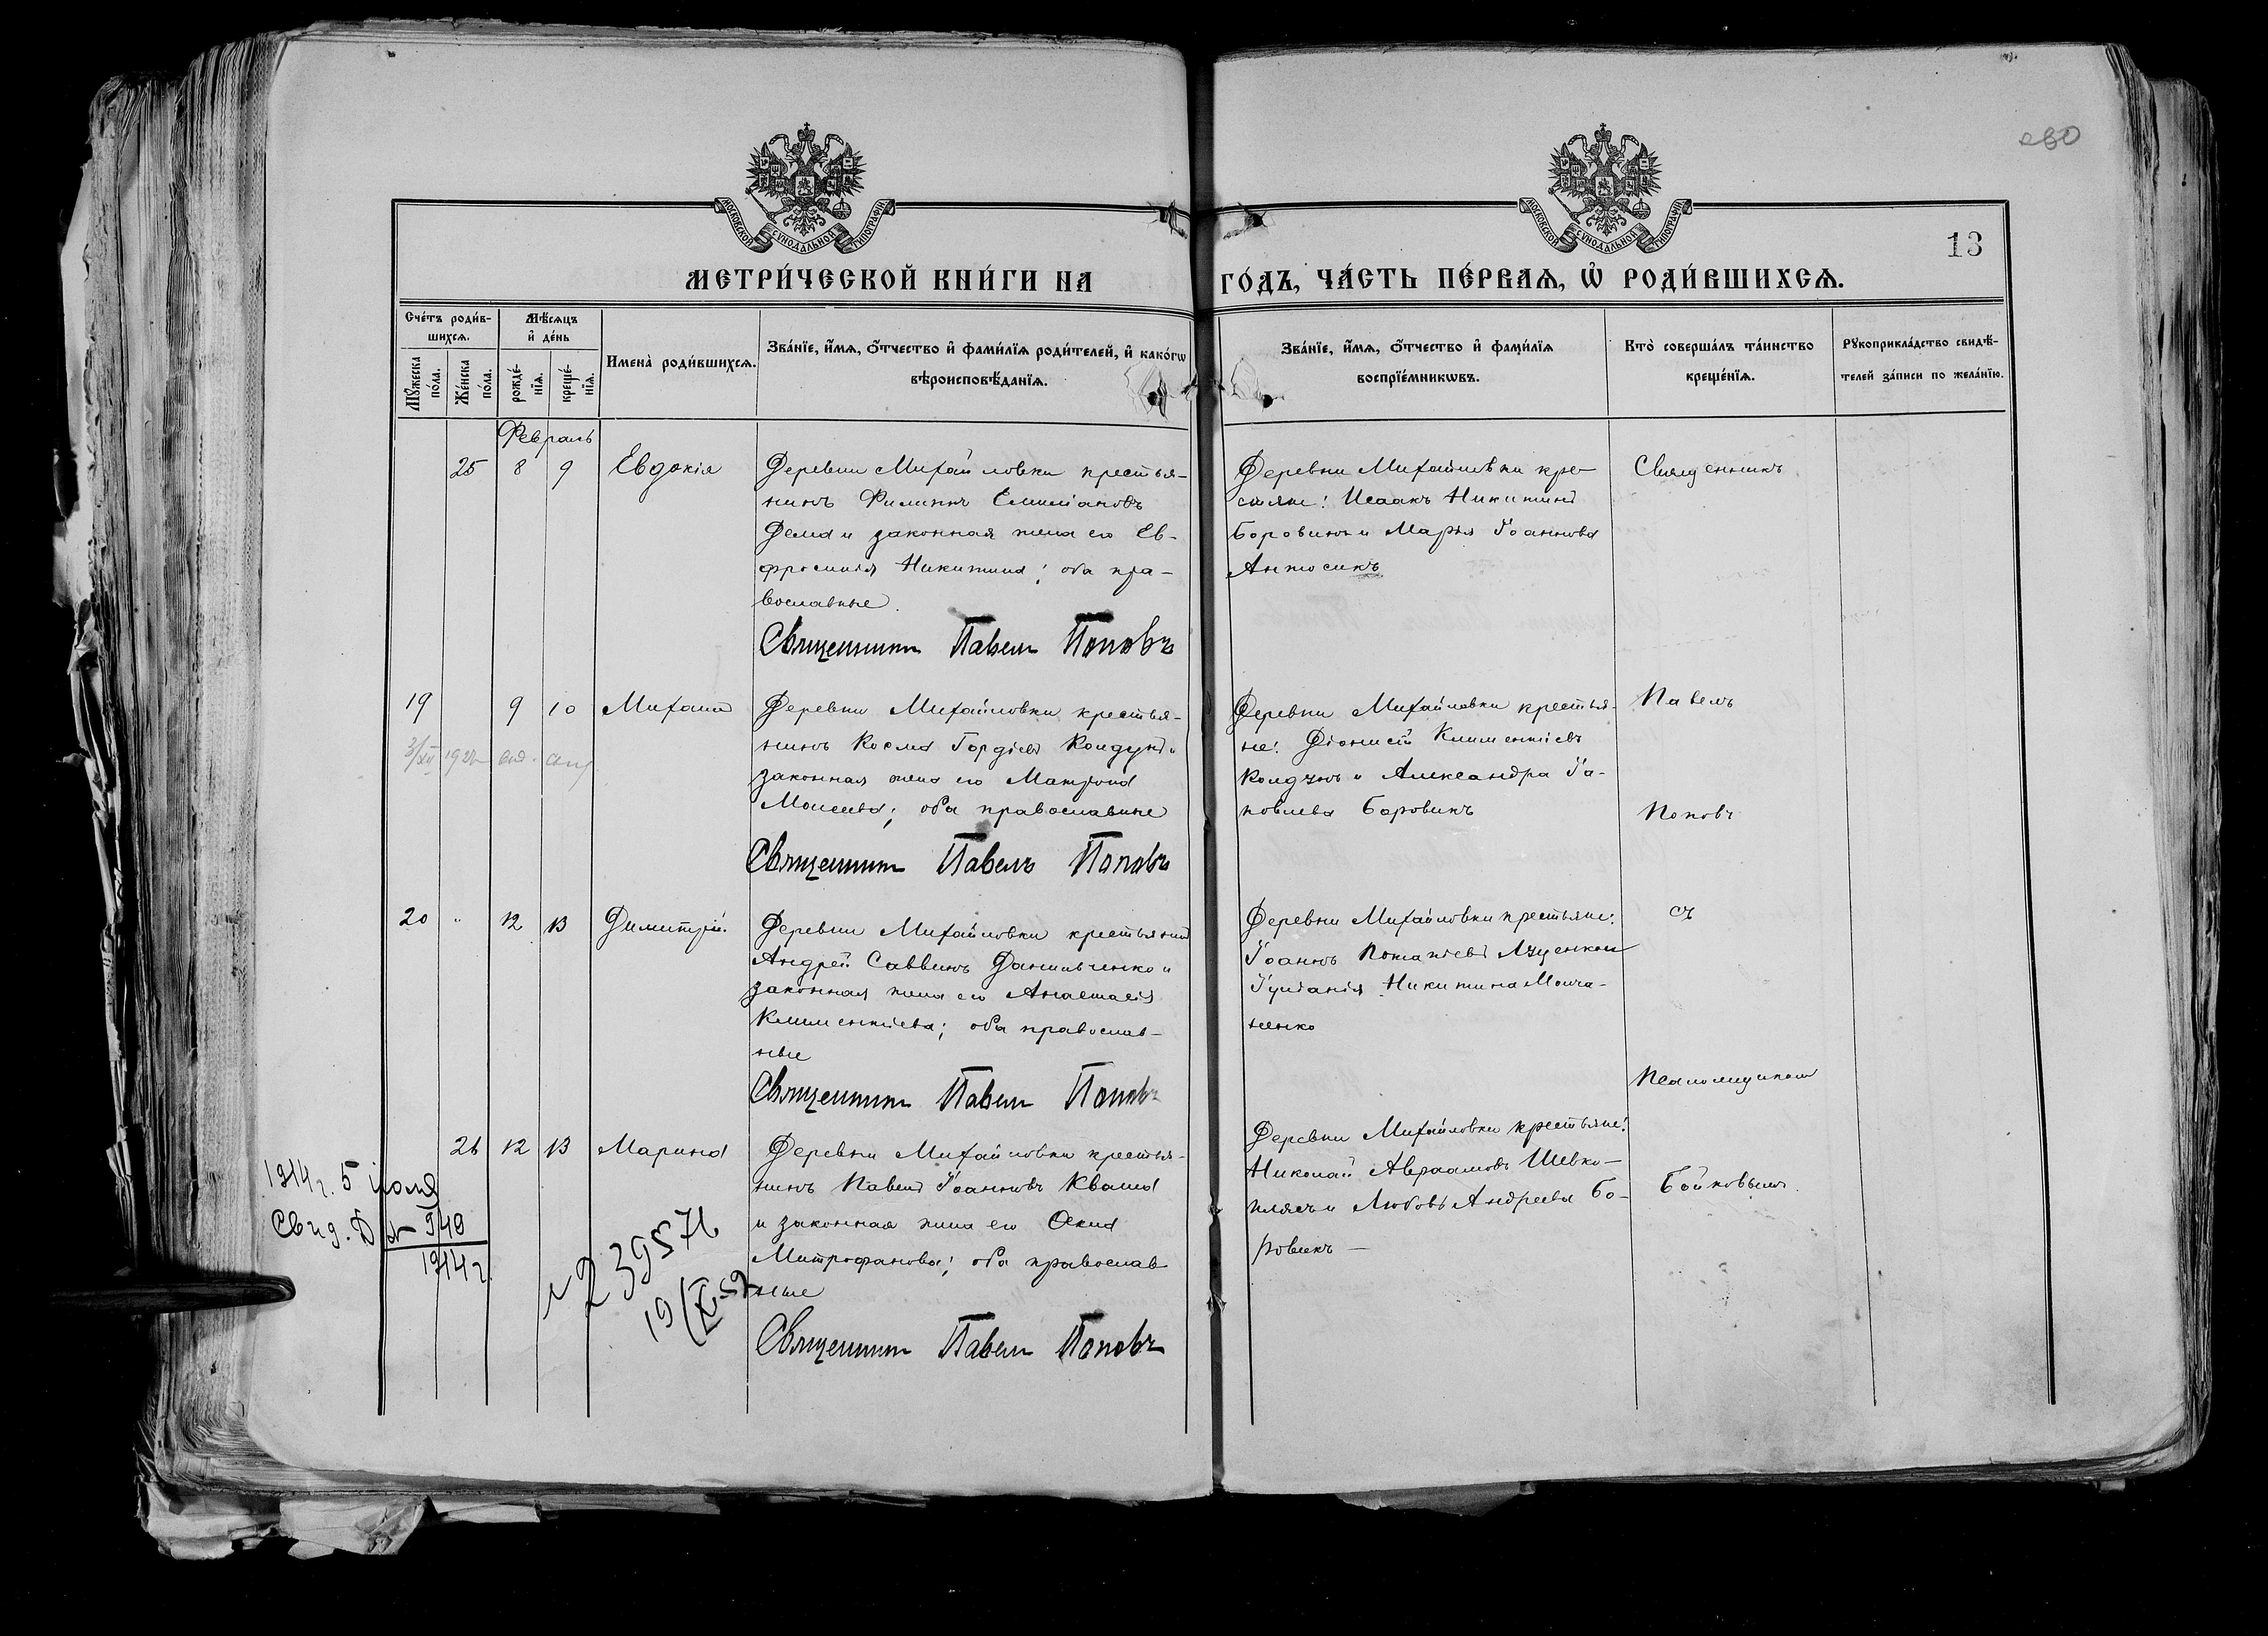 260
13
МОСКОВСКОЙ СѴНОДАЛЬНОЙ ТИПОГРАФІИ
МОСКОВСКОЙ СѴНОДАЛЬНОЙ ТИПОГРАФІИ
МЕТРИ́ЧЕСКОЙ КНИ́ГИ НА ГО́ДЪ, ЧА́СТЬ ПЕ́РВАѦ, Ѡ҆ РОДИ́ВШИХСѦ.
Сче́тъ роди́в-
шихсѧ.
Мꙋ́жеска
по́ла.
Же́нска
по́ла.
Мѣ́сѧцъ
и҆ де́нь
рожде́-
нїѧ.
креще́-
нїѧ.
Имена̀ роди́вшихсѧ.
Зва́нїе, и҆́мѧ, ѻ҆́тчество и҆ фами́лїѧ роди́телей, и҆ како́гѡ
вѣроисповѣ́данїѧ.
Зва́нїе, и҆́мѧ, ѻ҆́тчество и҆ фами́лїѧ
воспрїе́мникѡвъ.
Кто̀ соверша́лъ та́инство
креще́нїѧ.
Рꙋкоприкла́дство свидѣ́-
телей за́писи по жела́нїю.
Февраль
25 8 9 Евдокія
Деревни Михайловки крестья-
нинъ Филиппъ Емиліановъ
Дема и законная жена его Ев-
фросинія Никитина; оба пра-
вославные.
Священникъ Павелъ Поповъ
Деревни Михайловки кре-
стьяне: Исаакъ Никитинъ
Боровикъ и Марія Іоаннова
Антосикъ
Священникъ
19 9 10 Михаилъ
3/XII 192
Деревни Михайловки крестья-
нинъ Косма Гордіевъ Колдунъ и
законная жена его Матрона
Моисеева; оба православные
Священникъ Павелъ Поповъ
Деревни Михайловки крестья-
не: Діонисій Климентіевъ
Колдунъ и Александра Іа-
ковлева Боровикъ
Павелъ
Поповъ
20 " 12 13 Димитрій
Деревни Михайловки крестьянинъ
Андрей Саввинъ Данильченко и
законная жена его Анастасія
Климентіева; оба православ-
ные
Священникъ Павелъ Поповъ
Деревни Михайловки крестьяне:
Іоаннъ Потапіевъ Луценко и
Іуліанія Никитина Молча-
ненко
съ
Псаломщикомъ
26 12 13 Марина
Деревни Михайловки крестья-
нинъ Павелъ Іоанновъ Кваша
и законная жена его Акина
Митрофанова; оба православ
ные
Священникъ Павелъ Поповъ
Деревни Михайловки крестьяне:
Николай Авраамовъ Шевко-
плясъ и Любовь Андреева Бо-
ровикъ —
Бойковымъ.
1914 г. 5 іюля
Свид. Д № 940
1914 г.
№ 239576
19/IX-59